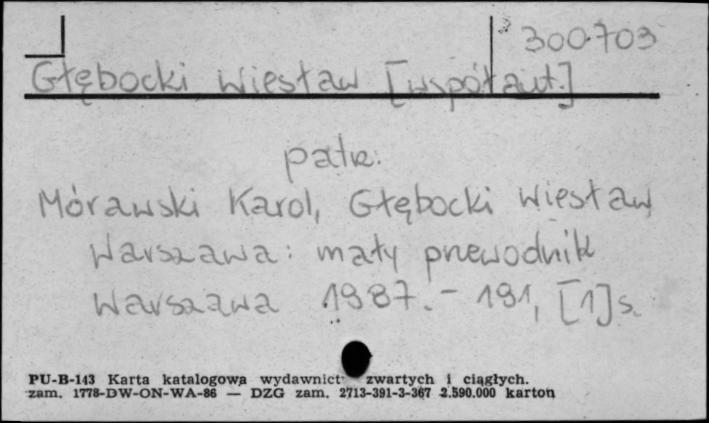 300703
Głębocki Wiesław [współaut.]
patrz:
Mórawski Karol, Głębocki Wiesław
Warszawa: mały przewodnik
Warszawa 1987. - 191, [1] s.
PU-B-143 Karta katalogowa wydawnict zwartych i ciągłych.
zam. 1778-DW-ON-WA-86 — DZG zam. 2713-391-3-367 2.590.000 karton